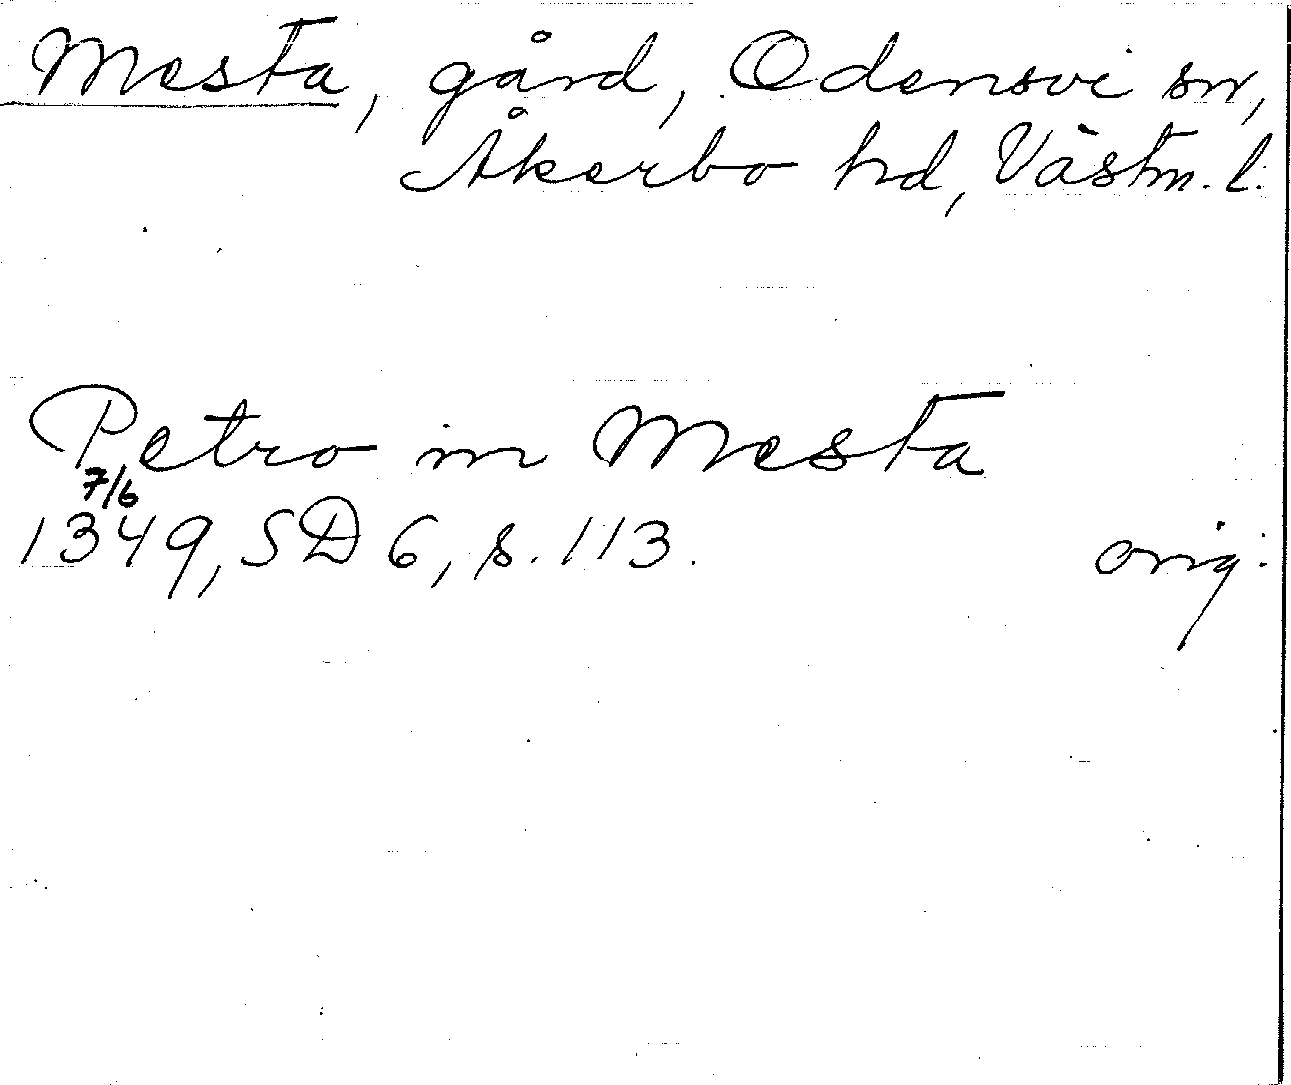 Mesta, gård, Odensvi sn,
Åkerbo hd, Västm. l.
Petro in Mesta
7/6
1349, SD 6, s. 113.
orig.